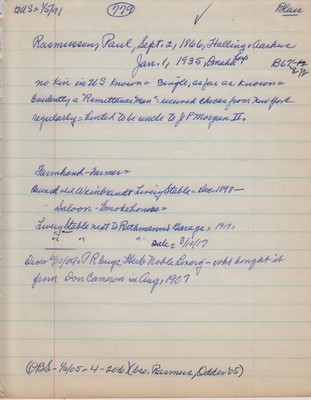 to U.S= 1/5/91 779 ✓ Blair
Rasmussen, Paul, Sept. 2, 1866, Halling = Aarhus
Jan. 1, 1935, Omaha
no kin in US known = Single, as far as known =
Evidently a "Remittance Man" = received checks from New York
regularly = hinted to be uncle to J P Morgan II.
Farmhand - Farmer =
Owned old Weinbrandt Livery Stable = Dec. 1898 —
" Saloon - Smokehouse =
Livery Stable next to Rathmanns Garage = 1917 =
" " " " Sale = 3/10/17
Demo 6/10/09 = P R buys Herb Noble Livery - who bought it
from Don Cameron in Aug, 1907
(DBS - 1/6/05 - 4 - 206) (bro. Rasmus, Odder '05)